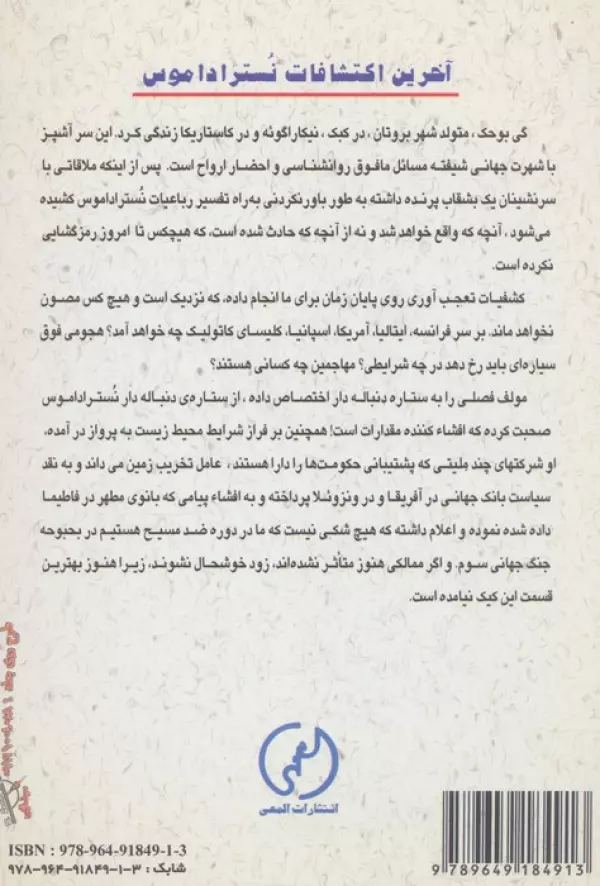 آخرین اکتشافات نُستراداموس
گی بوحک، متولد شهر بروتان، در کبک، نیکاراگوئه و در کاستاریکا زندگی کرد. این سر آشپز
با شهرت جهانی شیفته مسائل مافوق روانشناسی و احضار ارواح است. پس از اینکه ملاقاتی با
سرنشینان یک بشقاب پرنده داشته به طور باورنکردنی به‌راه تفسیر رباعیات نُستراداموس کشیده
می‌شود، آنچه که واقع خواهد شد و نه از آنچه که حادث شده است، که هیچکس تا امروز رمزگشایی
نکرده است.
کشفیات تعجب آوری روی پایان زمان برای ما انجام داده، که نزدیک است و هیچ کس مصون
نخواهد ماند. بر سر فرانسه، ایتالیا، آمریکا، اسپانیا، کلیسای کاتولیک چه خواهد آمد؟ هجومی فوق
سیاره‌ای باید رخ دهد در چه شرایطی؟ مهاجمین چه کسانی هستند؟
مولف فصلی را به ستاره دنباله دار اختصاص داده، از ستاره‌ی دنباله دار نُستراداموس
صحبت کرده که افشاء کننده مقدارات است! همچنین بر فراز شرایط محیط زیست به پرواز در آمده،
او شرکتهای چند ملیتی که پشتیبانی حکومت‌ها را دارا هستند، عامل تخریب زمین می داند و به نقد
سیاست بانک جهانی در آفریقا و در ونزوئلا پرداخته و به افشاء پیامی که بانوی مطهر در فاطیما
داده شده نموده و اعلام داشته که هیچ شکی نیست که ما در دوره ضد مسیح هستیم در بحبوحه
جنگ جهانی سوم. و اگر ممالکی هنوز متأثر نشده‌اند، زود خوشحال نشوند، زیرا هنوز بهترین
قسمت این کیک نیامده است.
انتشارات المعی
ISBN : 978-964-91849-1-3
شابک : ۳-۱-۹۱۸۴۹-۹۶۴-۹۷۸
9 789649 184913